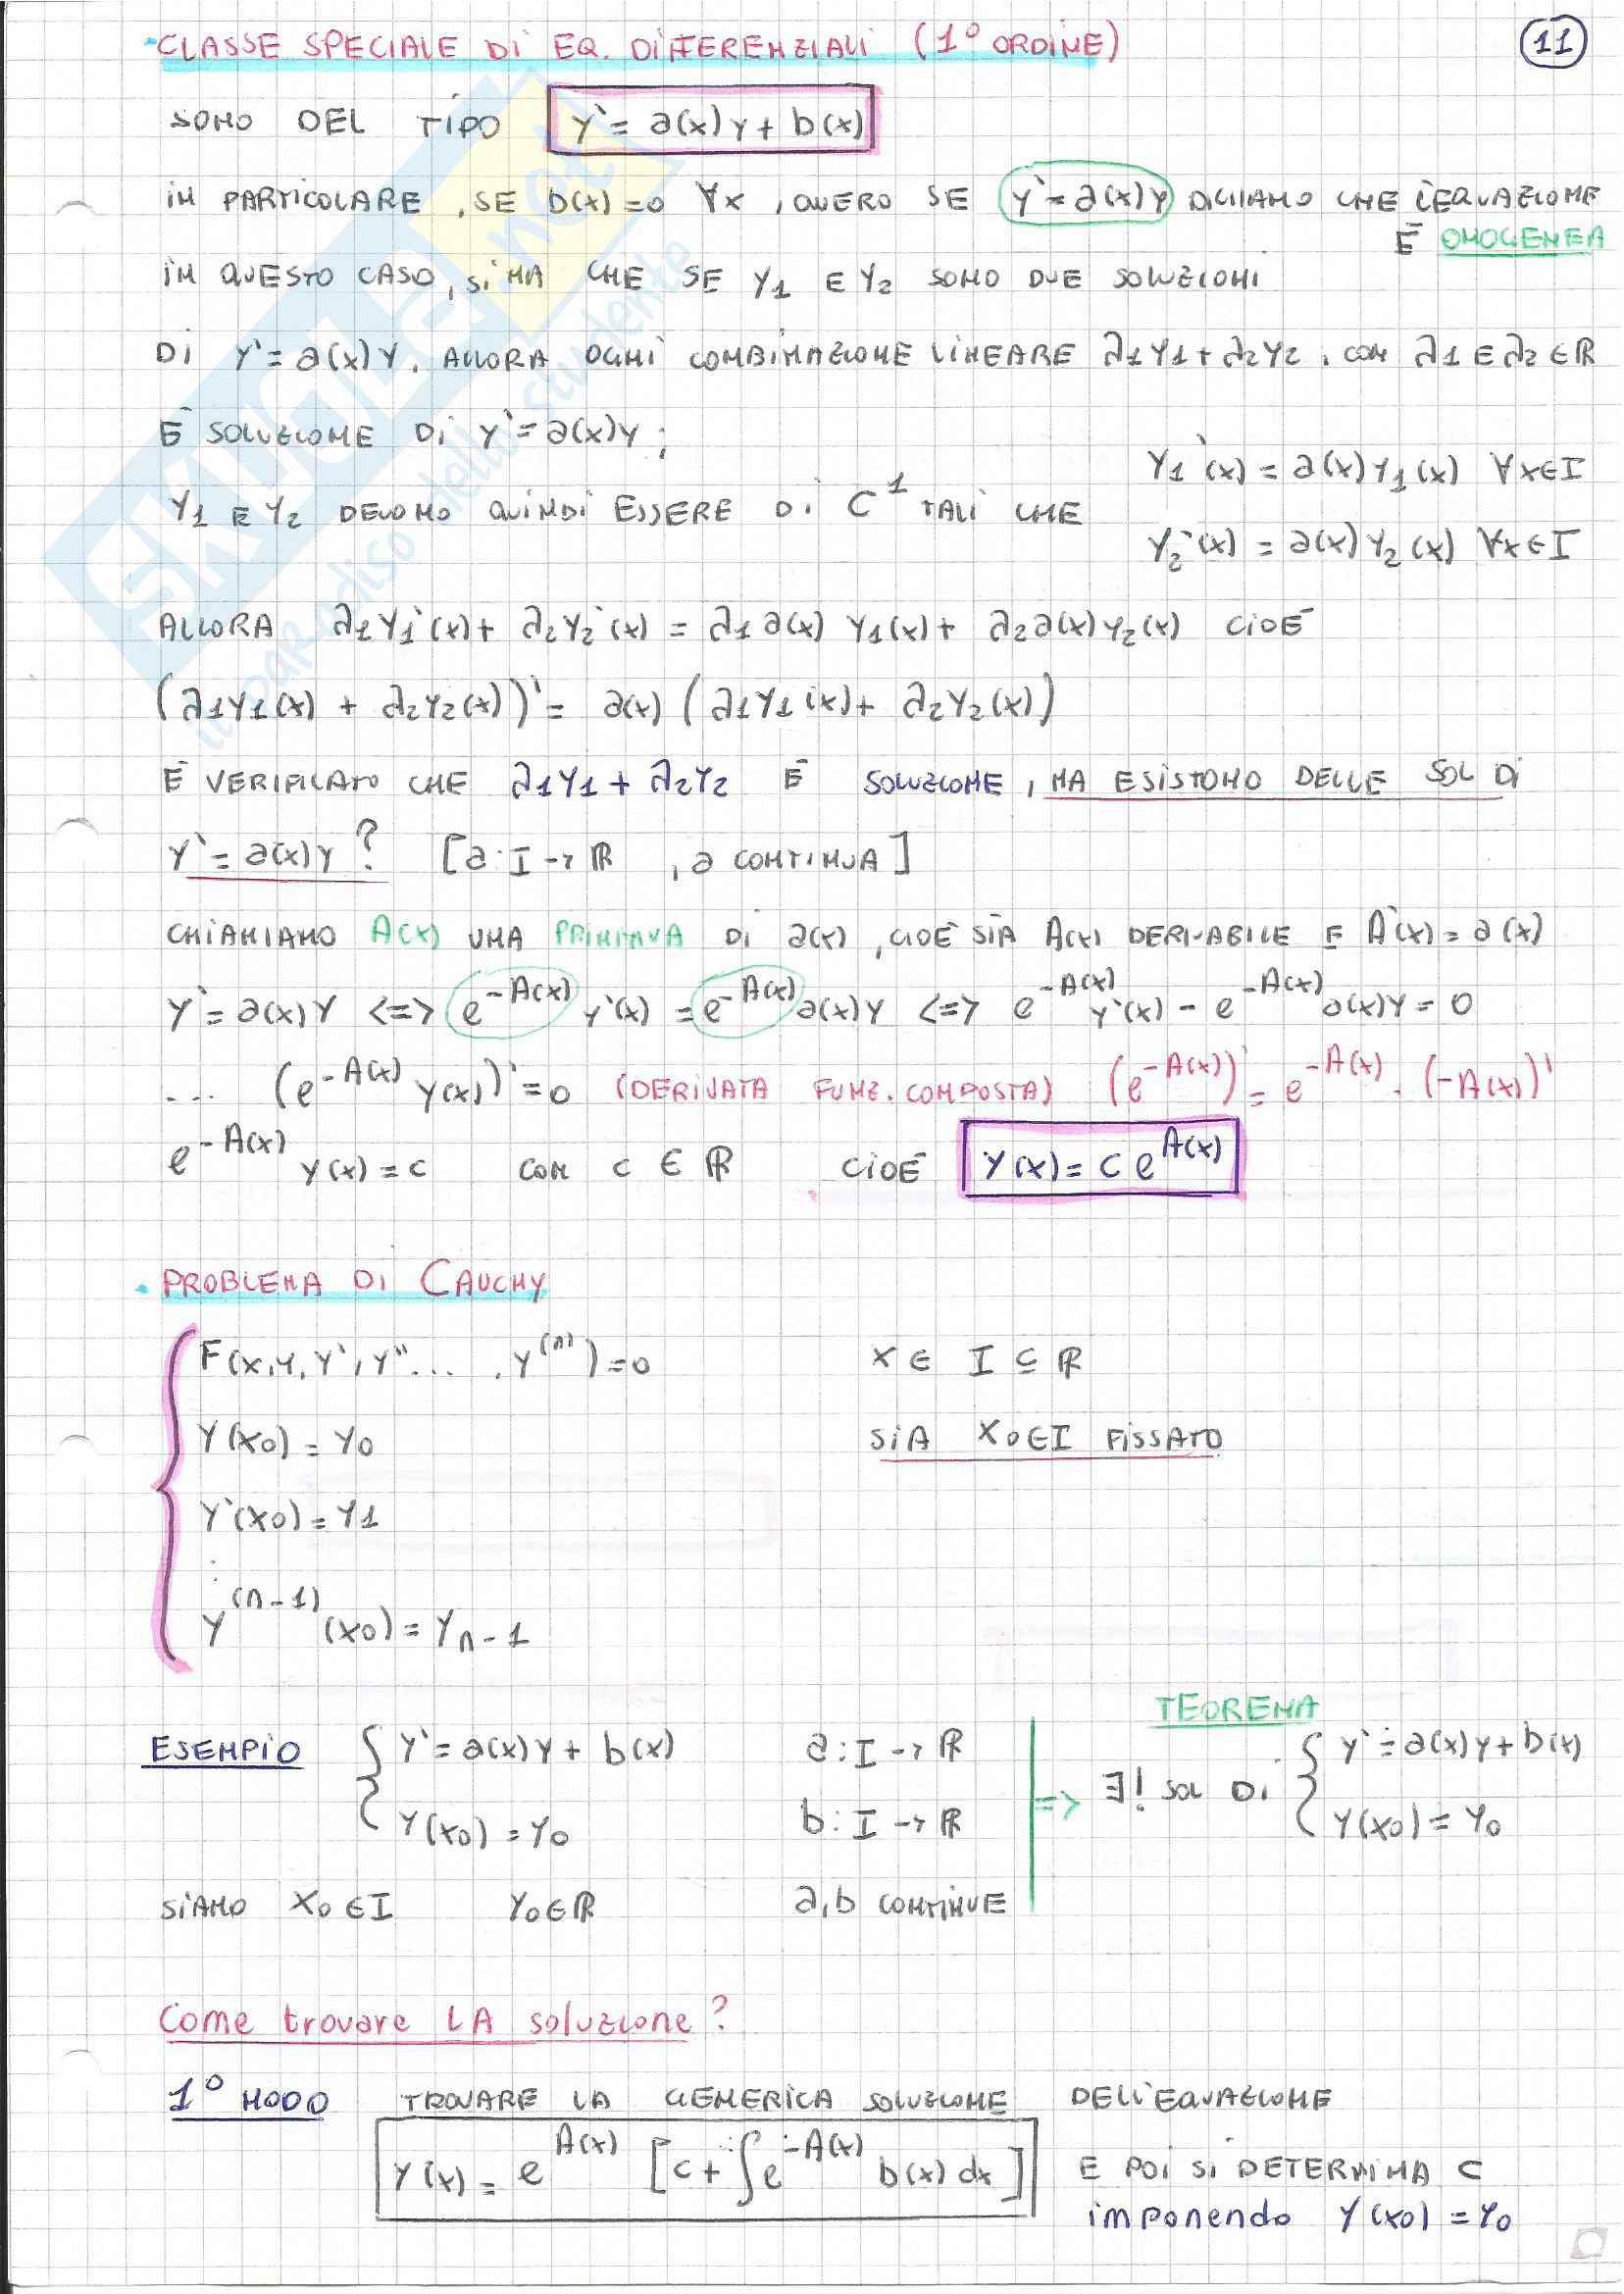 CLASSE SPECIALE DI EQ. DIFFERENZIALI (1° ORDINE)
11
SONO DEL TIPO y' = a(x)y + b(x)
IN PARTICOLARE, SE b(x)=0 ∀x, OVVERO SE y' = a(x)y DICIAMO CHE L'EQUAZIONE
È OMOGENEA
IN QUESTO CASO, SI HA CHE SE y1 E y2 SONO DUE SOLUZIONI
DI y' = a(x)y, ALLORA OGNI COMBINAZIONE LINEARE λ1y1 + λ2y2, CON λ1 E λ2 ∈ ℝ
È SOLUZIONE DI y' = a(x)y;
y1'(x) = a(x)y1(x) ∀x∈I
y1 E y2 DEVONO QUINDI ESSERE DI C^1 TALI CHE
y2'(x) = a(x)y2(x) ∀x∈I
ALLORA λ1y1'(x) + λ2y2'(x) = λ1 a(x) y1(x) + λ2 a(x) y2(x) CIOÈ
(λ1y1(x) + λ2y2(x))' = a(x) (λ1y1(x) + λ2y2(x))
È VERIFICATO CHE λ1y1 + λ2y2 È SOLUZIONE, MA ESISTONO DELLE SOL DI
y' = a(x)y? [a: I → ℝ, a CONTINUA]
CHIAMIAMO A(x) UNA PRIMITIVA DI a(x), CIOÈ SIA A(x) DERIVABILE E A'(x) = a(x)
y' = a(x)y <=> e^-A(x) y'(x) = e^-A(x) a(x)y <=> e^-A(x) y'(x) - e^-A(x) a(x)y = 0
... (e^-A(x) y(x))' = 0 (DERIVATA FUNZ. COMPOSTA) (e^-A(x))' = e^-A(x) · (-A(x))'
e^-A(x) y(x) = c CON c ∈ ℝ CIOÈ y(x) = c e^A(x)
PROBLEMA DI CAUCHY
F(x,y,y',y''... ,y^(n)) = 0 x ∈ I ⊆ ℝ
y(x0) = y0 SIA x0∈I FISSATO
y'(x0) = y1
y^(n-1)(x0) = yn-1
TEOREMA
ESEMPIO y' = a(x)y + b(x) a: I → ℝ => ∃! SOL DI y' = a(x)y + b(x)
y(x0) = y0 b: I → ℝ y(x0) = y0
SIANO x0 ∈ I y0 ∈ ℝ a,b CONTINUE
Come trovare LA soluzione?
1° MODO TROVARE LA GENERICA SOLUZIONE DELL'EQUAZIONE
y(x) = e^A(x) [c + ∫e^-A(x) b(x) dx] E POI SI DETERMINA C
imponendo y(x0) = y0
SKUOLA.net
il paradiso dello studente